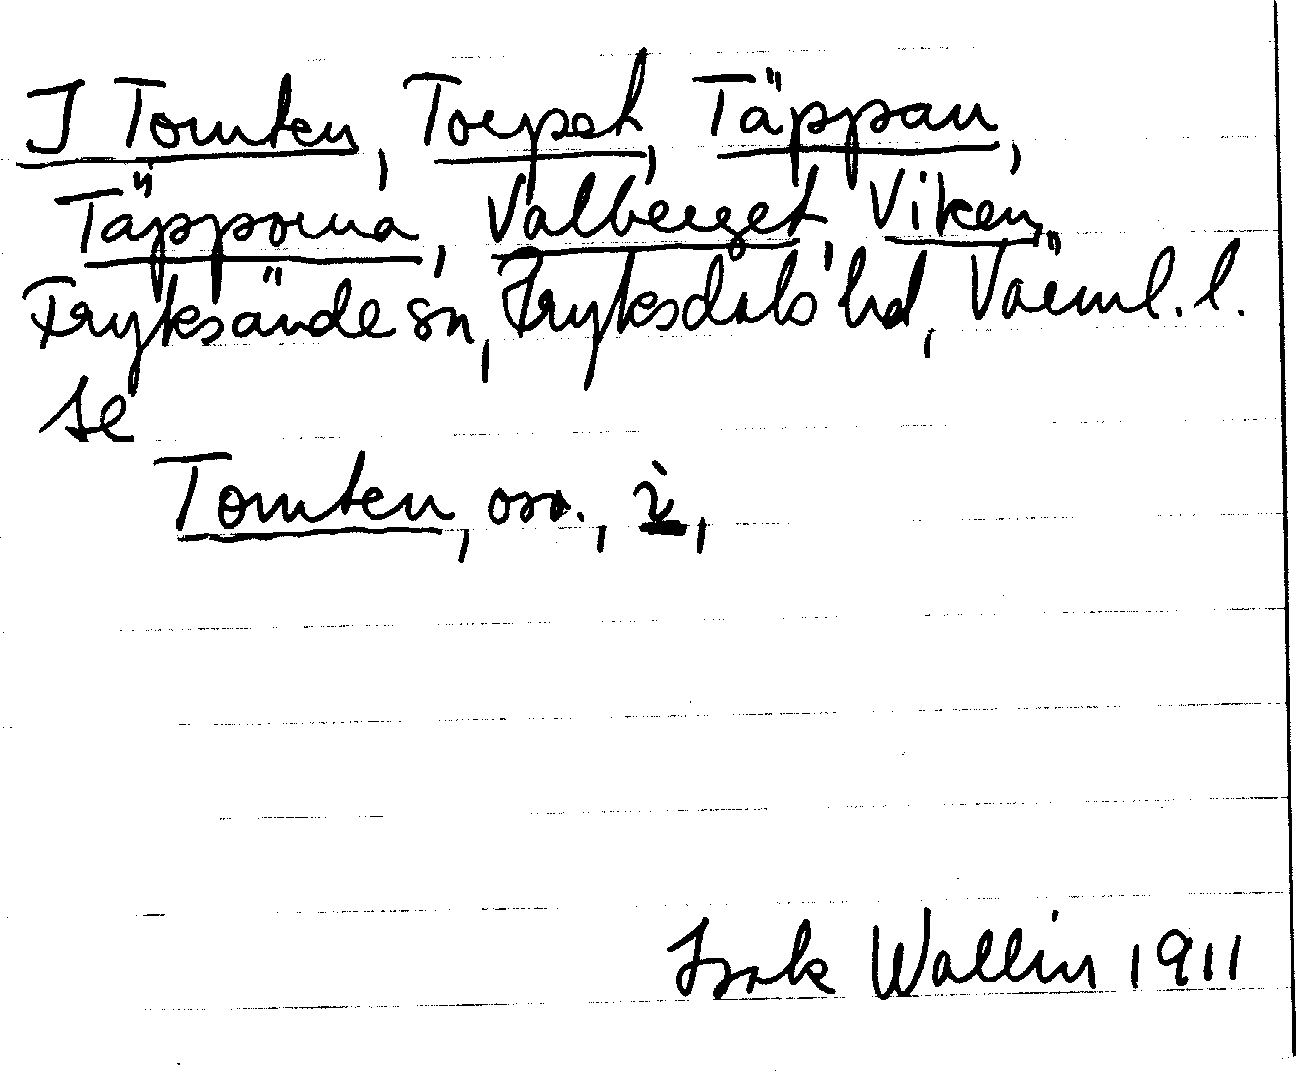 I Tomten, Torpet, Täppan,
Täpporna, Valberget, Viken,
Fryksände sn, Fryksdals hd, Värml. l.
se
Tomten, osv., i,
Isak Wallin 1911